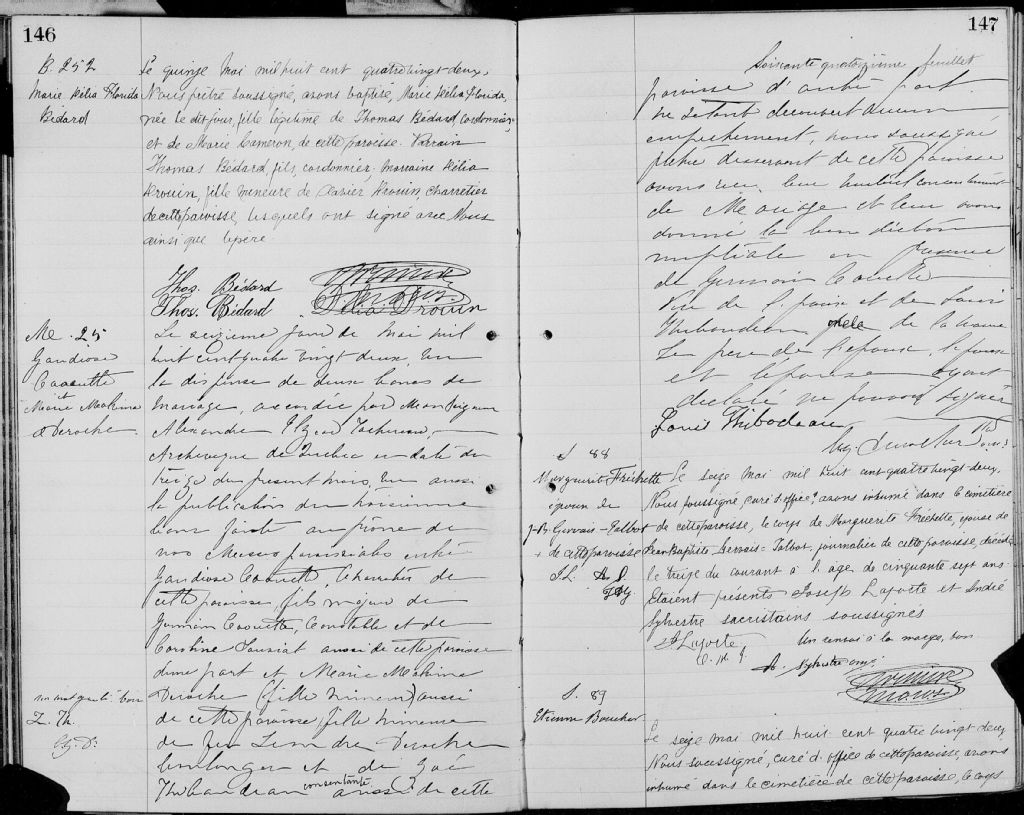 146
B. 252
Marie Délia Florida
Bédard
Le quinze Mai mil huit cent quatrevingt-deux,
Nous prêtre soussigné, avons baptisé, Marie Délia Florida,
née le dit jour, fille légitime de Thomas Bédard, cordonnier,
et de Marie Cameron, de cette paroisse. Parrain
Thomas Bédard, fils, cordonnier. Marraine Délia
Drouin, fille mineure de Xavier Drouin charretier
de cette paroisse, lesquels ont signé avec Nous
ainsi que le père.
Thos. Bédard
Thos. Bédard Délia Drouin
M. 25
Gaudiose
Caouette
et
Marie Malvina
Deroche
Le seizième jour de Mai mil
huit cent quatre vingt deux, vu
la dispense de deux bancs de
mariage, accordée par Monseigneur
Alexandre Elzéar Taschereau,
Archevêque de Québec en date du
treize du present mois, vu aussi
la publication du troisième
banc faite au prône de
nos Messes paroissiales entre
Gaudiose Caouette, Charretier de
cette paroisse, fils majeur de
Germain Caouette, Constable et de
Caroline aussi de cette paroisse
d'une part et Marie Malvina
Deroche (fille mineure) aussi
de cette paroisse, fille mineure
de feu Deroche
boulanger et de Zoé
Thibaudeau consentante aussi de cette
bon
L. Th.
147
Soixante quatorzième feuillet
paroisse d'autre part.
Ne s'étant découvert aucun
empêchement, nous soussigné,
prêtre desservant de cette paroisse
avons reçu leur mutuel consentement
de Mariage et leur avons
donné la bénédiction
nuptiale en présence
de Germain Caouette
Père de l'époux et de Louis
Thibaudeau oncle de la mariée
Le père de l'époux, l'époux
et l'épouse ayant
déclaré ne pouvoir signer
Louis Thibodeau
S 88
Marguerite Fréchette
épouse de
J-B. Gervais-Talbot
+ de cette paroisse
J.L. A. S.
Le seize Mai mil huit cent quatre vingt deux.
Nous soussigné, curé d'office, avons inhumé dans le cimetière
de cette paroisse, le corps de Marguerite Fréchette, épouse de
Jean-Baptiste Gervais=Talbot, journalier de cette paroisse, décédée
le treize du courant à l'age de cinquante sept ans.
Etaient présents Joseph Laforte et André
Sylvestre sacristains soussignés
Un renvoi à la marge, bon
J Laforte
A. Sylvestre
S. 89
Etienne Boucher
Le seize Mai mil huit cent quatre vingt deux
Nous soussigné, curé d'office de cette paroisse, avons
inhumé dans le cimetière de cette paroisse, le corps